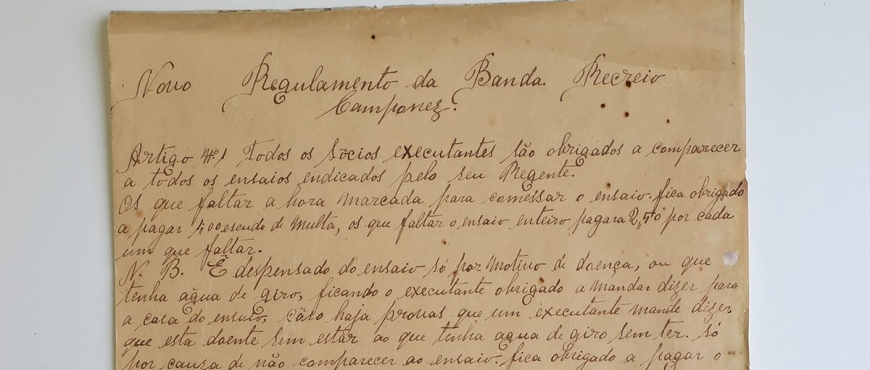 Novo Regulamento da Banda Recreio
Camponez.
Artigo Nº1 Todos os Socios executantes são obrigados a comparecer
a todos os ensaios endicados pelo seu Regente.
Os que faltar a hora marcada para comessar o ensaio, fica obrigado
a pagar escudo de Multa, os que faltar o ensaio enteiro pagara por cada
um que faltar.
N. B. É despensado do ensaio só por Motivo de doença, ou que
tenha agua de giro, ficando o executante obrigado a mandar dizer para
a casa do ensaio, caso haja provas que um executante mande dizer
que esta doente sem estar ao que tenha agua de giro sem ter. só
por causa de não comparecer ao ensaio, fica obrigado a pagar o